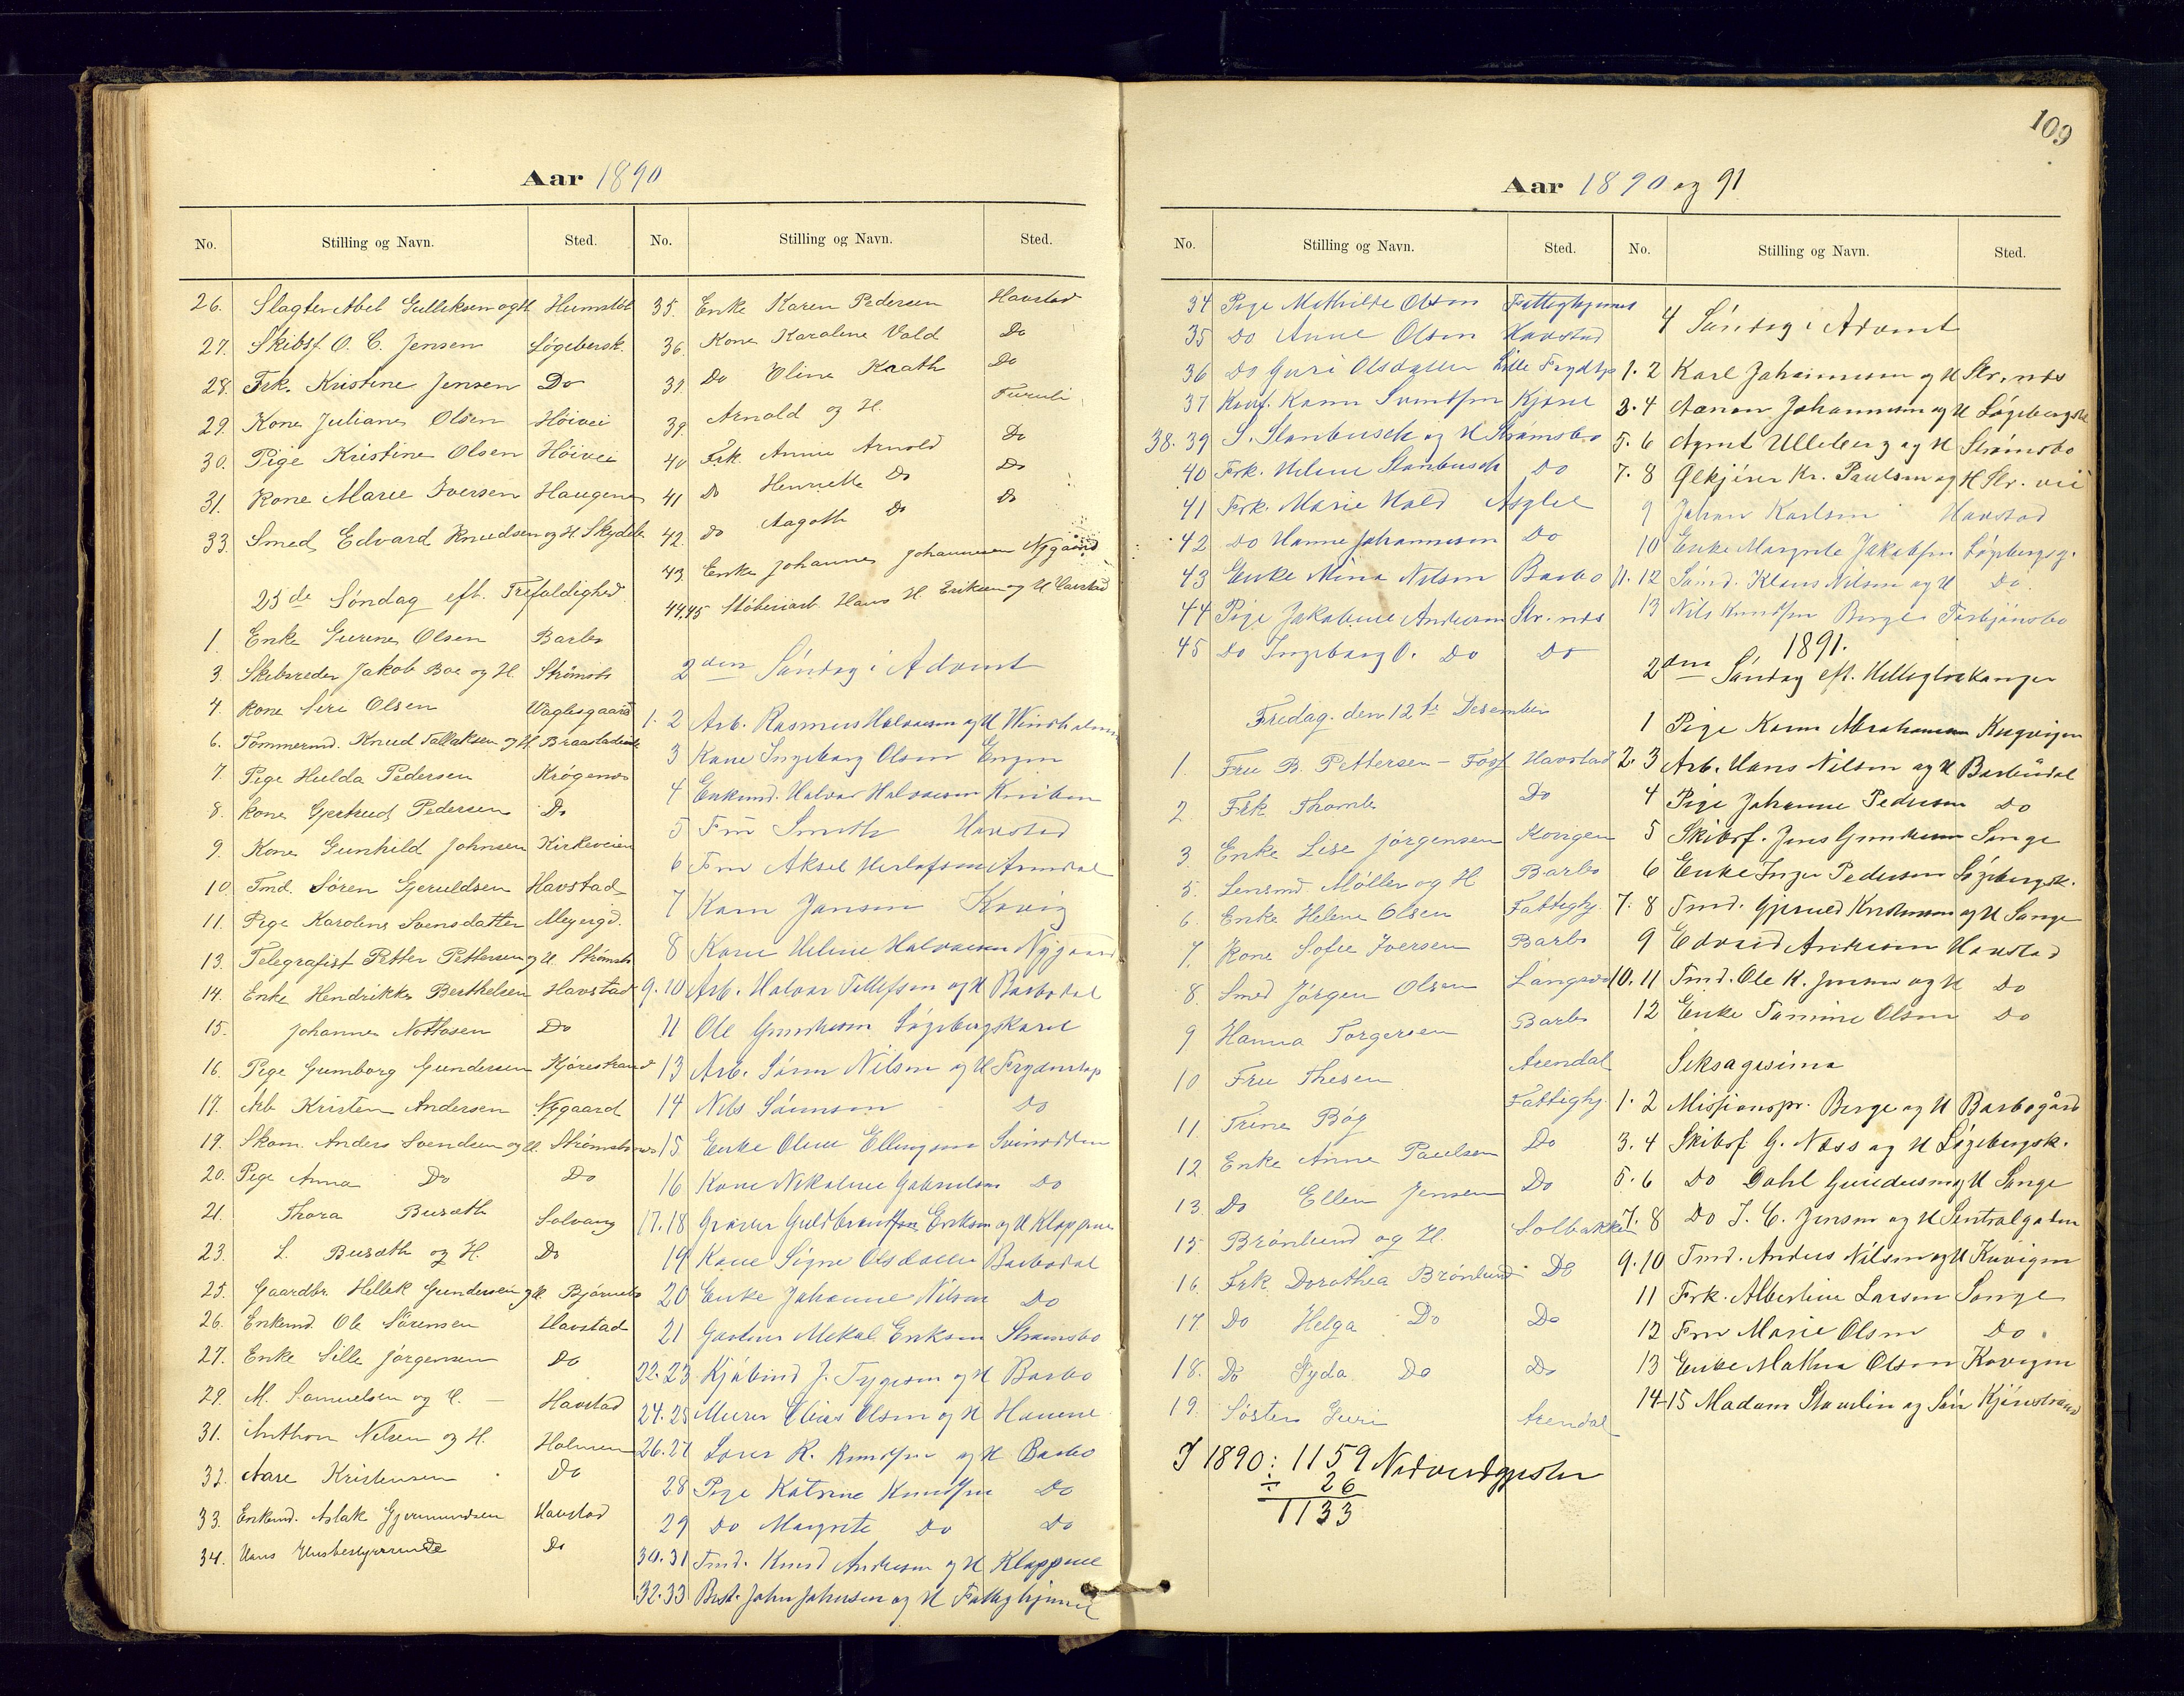 Aar 1890
No. Stilling og Navn. Sted. No. Stilling og Navn. Sted.
26. Slagter Abel Gulleksen og H. Humstøl
27. Skibsf. O. C. Jensen Løgebersk.
28. Frk. Kristine Jensen Do
29. Kone Juliane Olsen Höivei
30. Pige Kristine Olsen Höivei
31. Kone Marie Iversen Haugene
33. Smed Edvard Knudsen og H. Skydeb.
23de Söndag eft. Trefoldighed.
1. Enke Gurine Olsen Barbo
3. Skibsreder Jakob Boe og H. Strømsb
4. Kone Siri Olsen Waglesgaard
6. Tømmermd. Knud Tallaksen og H. Braastad
7. Pige Hulda Pedersen Krøgenes
8. Kone Gjertrud Pedersen Do
9. Kone Gunhild Johnsen Kirkeveien
10. Tmd. Sören Gjeruldsen Havstad
11. Pige Karoline Svensdatter Meyergd.
13. Telegrafist Petter Pettersen og H. Strømsb
14. Enke Hendrikke Berthelsen Havstad
15. Johanne Do
16. Pige Gumborg Gundersen Kjörestrand
17. Arb Kristen Andersen Nygaard
19. Skom. Anders Svendsen og H. Strømsb
20. Pige Anna Do Do
21. Thora Buræth Solvang
23. L. Buræth og H. Do
25. Gaardbr. Hellek Gundersen og H. Bjørnebo
26. Enkemd. Ole Sörensen Havstad
27. Enke Sille Jörgensen Do
29. M. Samuelsen og H. — Havstad
31. Anthon Nelsen og H. Holmen
32. Aase Kristensen Do
33. Enkemd. Aslak Gjermundsen Havstad
34. Hans Husbestyrerinde Do
35. Enke Karen Pedersen Havstad
36. Kone Karoline Vold Do
37. Do Eline Kraath Do
39. Arnold og H. Furuli
40 Frk. Anna Arnold Do
41 Do Henriette Do Do
42. Do Aagoth Do Do
43. Enke Johanne Johannesen Nygaard
44.45 Støberiarb. Hans H. Eriksen og H Havstad
2den Söndag i Advent
1. 2 Arb. Rasmus Halvorsen og H Windholmen
3 Kone Ingeborg Olsen Engen
4 Enkemd. Halvor Halvorsen Kniben
5 Fru Smith Havstad
6 Fru Aksel Herlofsen Arendal
7 Karen Jansen Kovig
8 Kone Helene Halvorsen Nygaard
9.10 Arb. Halvor Tellefsen og H Barbodal
11 Ole Gundersen Løgebergskaret
13 Arb. Sören Nilsen og H Frydenstop
14 Nils Sörensen Do
15 Enke Oline Ellingsen Svinodden
16 Kone Nikoline Gabrielsen Do
17.18 Graver Guldbrandsen Eriksen og H Kloppene
19 Kone Signe Olsdatter Barbodal
20 Enke Johanne Nilsen Do
21 Gartner Mekal Eriksen Strømsbo
22.23 Kjøbmd J. Tygesen og H Barbo
24.25 Murer Elias Olsen og H Havene
26.27 Lovis K. Knudsen og H Barbo
28 Pige Katrine Knudsen Do
29 Do Margrete Do Do
30.31 Tmd. Knud Andersen og H Kloppene
32.33 Best. John Johnsen og H Fattighjemmet
109
Aar 1890 og 91
No. Stilling og Navn. Sted. No. Stilling og Navn. Sted.
34 Pige Mathilde Olsen Fattighjemmet
35 Do Anne Olsen Havstad
36 Do Guri Olsdatter Lille Frydstp
37 Karen Svendsen Kjøne
38. 39 S. Stanbusch og H Strømsbo
40 Frk. Helene Stanbusch Do
41 Frk. Marie Hald Asylet
42 Do Hanne Johannesen Do
43 Enke Mina Nilsen Barbo
44 Pige Jakobine Andersen Str. nes
45 Do Ingeborg O. Do Do
Fredag. den 12te Desember
1. Fru B. Pettersen - Foss Havstad
2. Frk Do
3. Enke Lise Jörgensen Kovigen
5. Lensmd. Møller og H Barbo
6. Enke Helene Olsen Fattighj.
7. Kone Sofie Iversen Barbo
8. Smed Jörgen Olsen
9 Hanna Torgersen Barbo
10 Fru Thesen Arendal
11 Trine Bög Fattighj.
12 Enke Anne Paulsen Do
13 Do Ellen Jensen Do
15 Brönlund og H. Solbakken
16. Frk. Dorothea Brönlund Do
17 Do Helga Do Do
18. Do Gyda Do Do
19. Søster Guri Arendal
I 1890: 1159 Nadverdgjester
÷ 26
1133
4 Söndag i Advent
1. 2 Karl Johannesen og H Str. nes
3. 4 Aanon Johannesen og H Løgebergsk
5. 6 Agent Ulleberg og H Strømsbo
7. 8 Ølkjører Kr. Paulsen og H Str. vei
9 Johan Karlsen Havstad
10 Enke Margrete Jakobsen Løgebergsg.
11. 12 Sömd. Klaus Nilsen og H Do.
13 Nils Knudsen Berge Torbjönsbo
1891.
2den Söndag eft. Helligtrekonger
1 Pige Karen Abrahamsen Kugvigen
2. 3 Arb. Hans Nilsen og H Barbodal
4 Pige Johanne Pedersen Do
5 Skibsf. Jens Gundersen Songe
6 Enke Inger Pedersen Løgebergsk.
7. 8 Tmd. Gjeruld Kristensen og H Songe
9 Edvard Andersen Havstad
10. 11 Tmd. Ole K. Jensen og H Do
12 Enke Tomine Olsen Do
Seksagesima
1. 2 Missionspr. Berge og H Barbogård
3. 4 Skibsf. G. Næss og H Løgebergsk.
5. 6 Do Dahl Gundersen og H Songe
7. 8 Do J. C. Jensen og H Sentralgaden
9. 10 Tmd. Anders Nilsen og H Kovigen
11 Frk. Albertine Larsen Songe
12 Fru Marie Olsen Do.
13 Enke Mathea Olsen Kovigen
14-15 Madam Staulin og Sön Kjörestrand